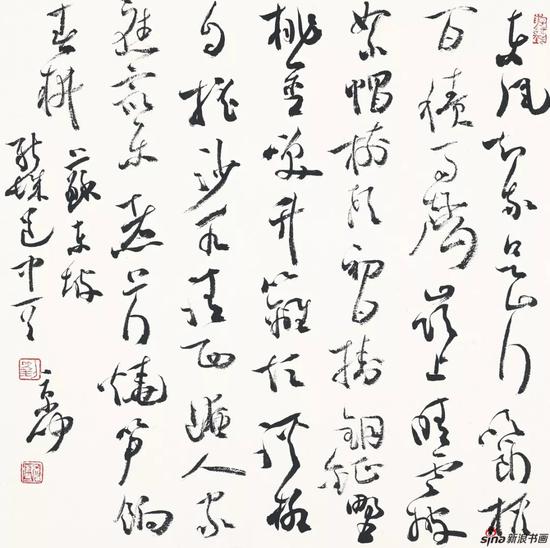 東風知我欲山行吹断檐
间積雨聲嶺上晴雲披
絮帽樹頭初日掛銅鉦野
桃含笑竹籬短溪柳
自摇沙水清西崦人家
應最樂煮芹燒筍餉
春耕
蘇東坡
新城道中一首
sina新浪书画